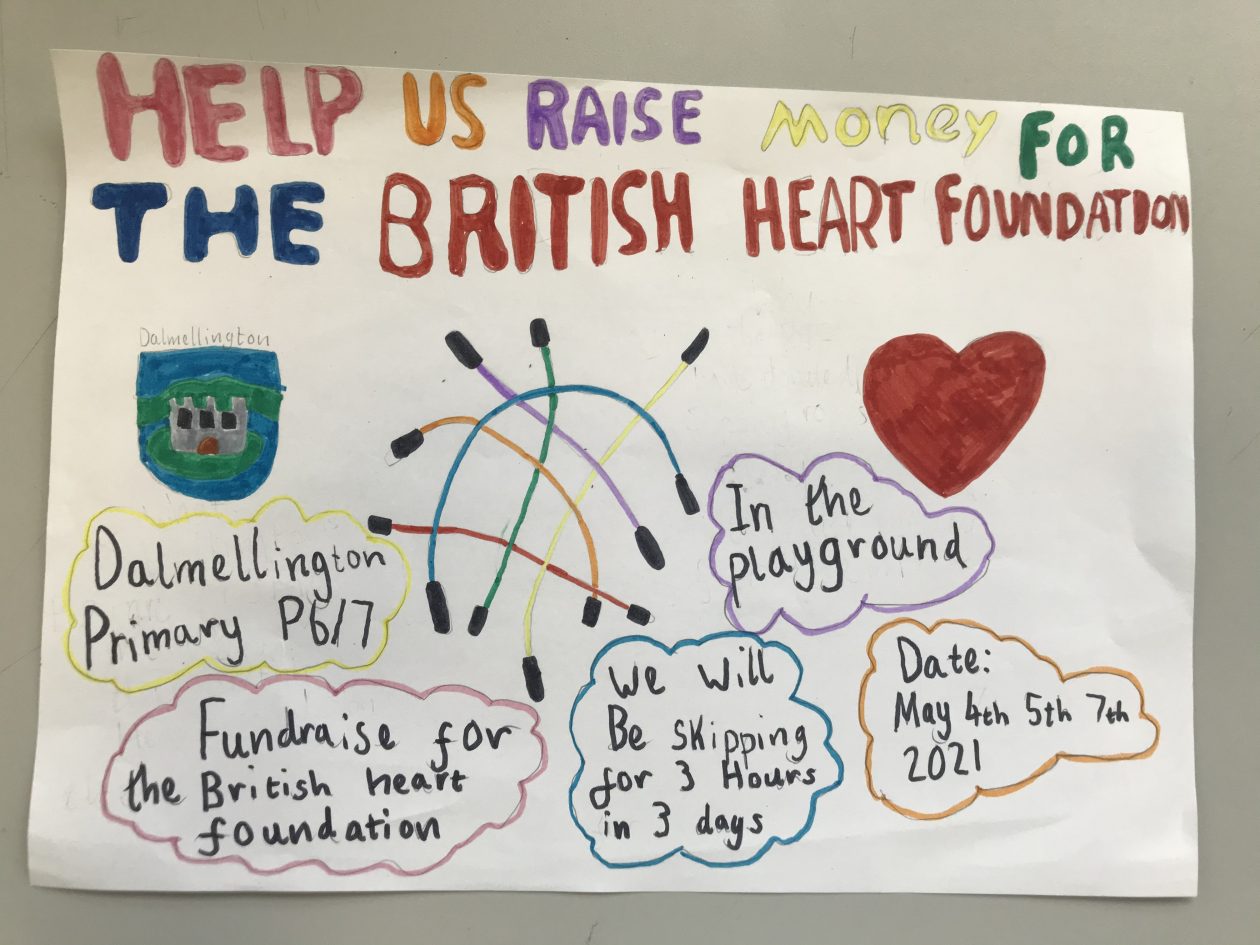 HELP US RAISE Money FOR
THE BRITISH HEART FOUNDATION
Dalmellington
Dalmellington
Primary P6/7
In the
playground
Fundraise for
the British heart
foundation
We Will
Be Skipping
for 3 Hours
in 3 days
Date:
May 4th 5th 7th
2021